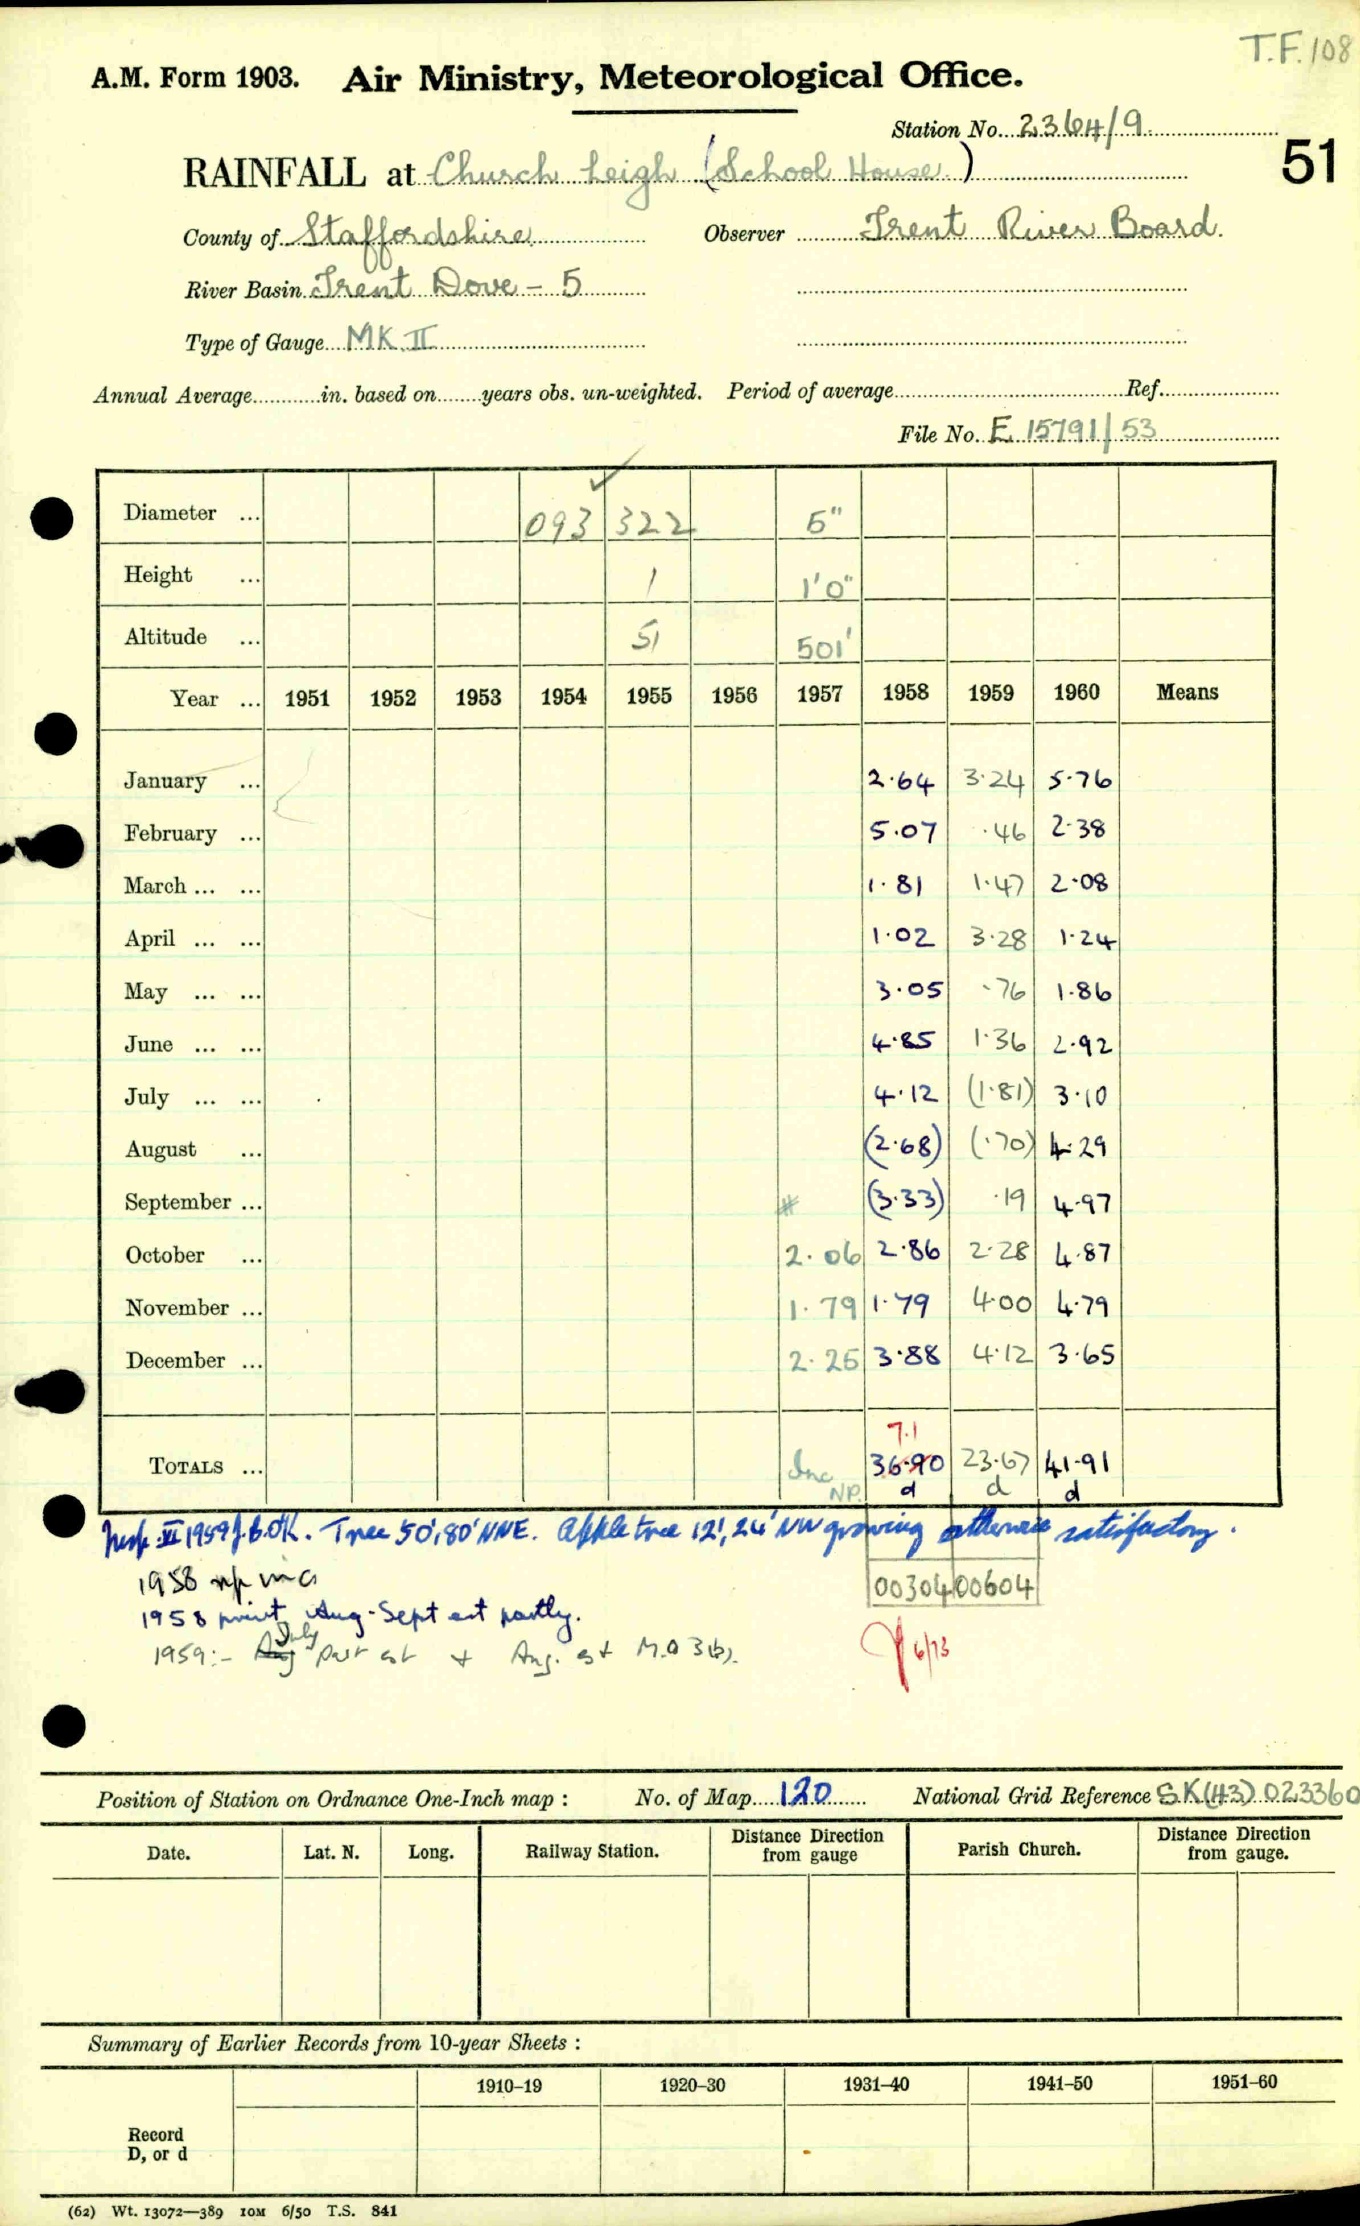 T.F. 108
A.M. Form 1903. Air Ministry, Meteorological Office.
Station No. 2364/9.
51
RAINFALL at Church Leigh (School House)
County of Staffordshire Observer Trent River Board.
River Basin Trent Dove - 5
Type of Gauge MK II
Annual Average in. based on years obs. un-weighted. Period of average Ref.
File No. E 15791/53
Diameter ... 093 322 5"
Height ... 1 1'0"
Altitude ... 51 501'
Year ... 1951 1952 1953 1954 1955 1956 1957 1958 1959 1960 Means
January ... 2.64 3.24 5.76
February ... 5.07 .46 2.38
March ... ... 1.81 1.47 2.08
April ... ... 1.02 3.28 1.24
May ... ... 3.05 .76 1.86
June ... ... 4.85 1.36 2.92
July ... ... 4.12 (1.81) 3.10
August ... (2.68) (.70) 4.29
September ... # (3.33) .19 4.97
October ... 2.06 2.86 2.28 4.87
November ... 1.79 1.79 4.00 4.79
December ... 2.25 3.88 4.12 3.65
7.1
TOTALS ... Inc 36.90 23.67 41.91
NP. d d d
Insp VI 1959 J.B.OK. Tree 50', 80' NNE. Apple tree 12', 24' NW growing otherwise satisfactory.
1958 np
00304 00604
1958 print Aug-Sept est partly.
1959:- Aug July part est + Aug. est M.O 3(b).
6/73
Position of Station on Ordnance One-Inch map : No. of Map 120 National Grid Reference SK(43) 023360
Date. Lat. N. Long. Railway Station. Distance Direction from gauge Parish Church. Distance Direction from gauge.
Summary of Earlier Records from 10-year Sheets :
1910–19 1920–30 1931–40 1941–50 1951–60
Record
D, or d
(62) Wt. 13072—389 10M 6/50 T.S. 841